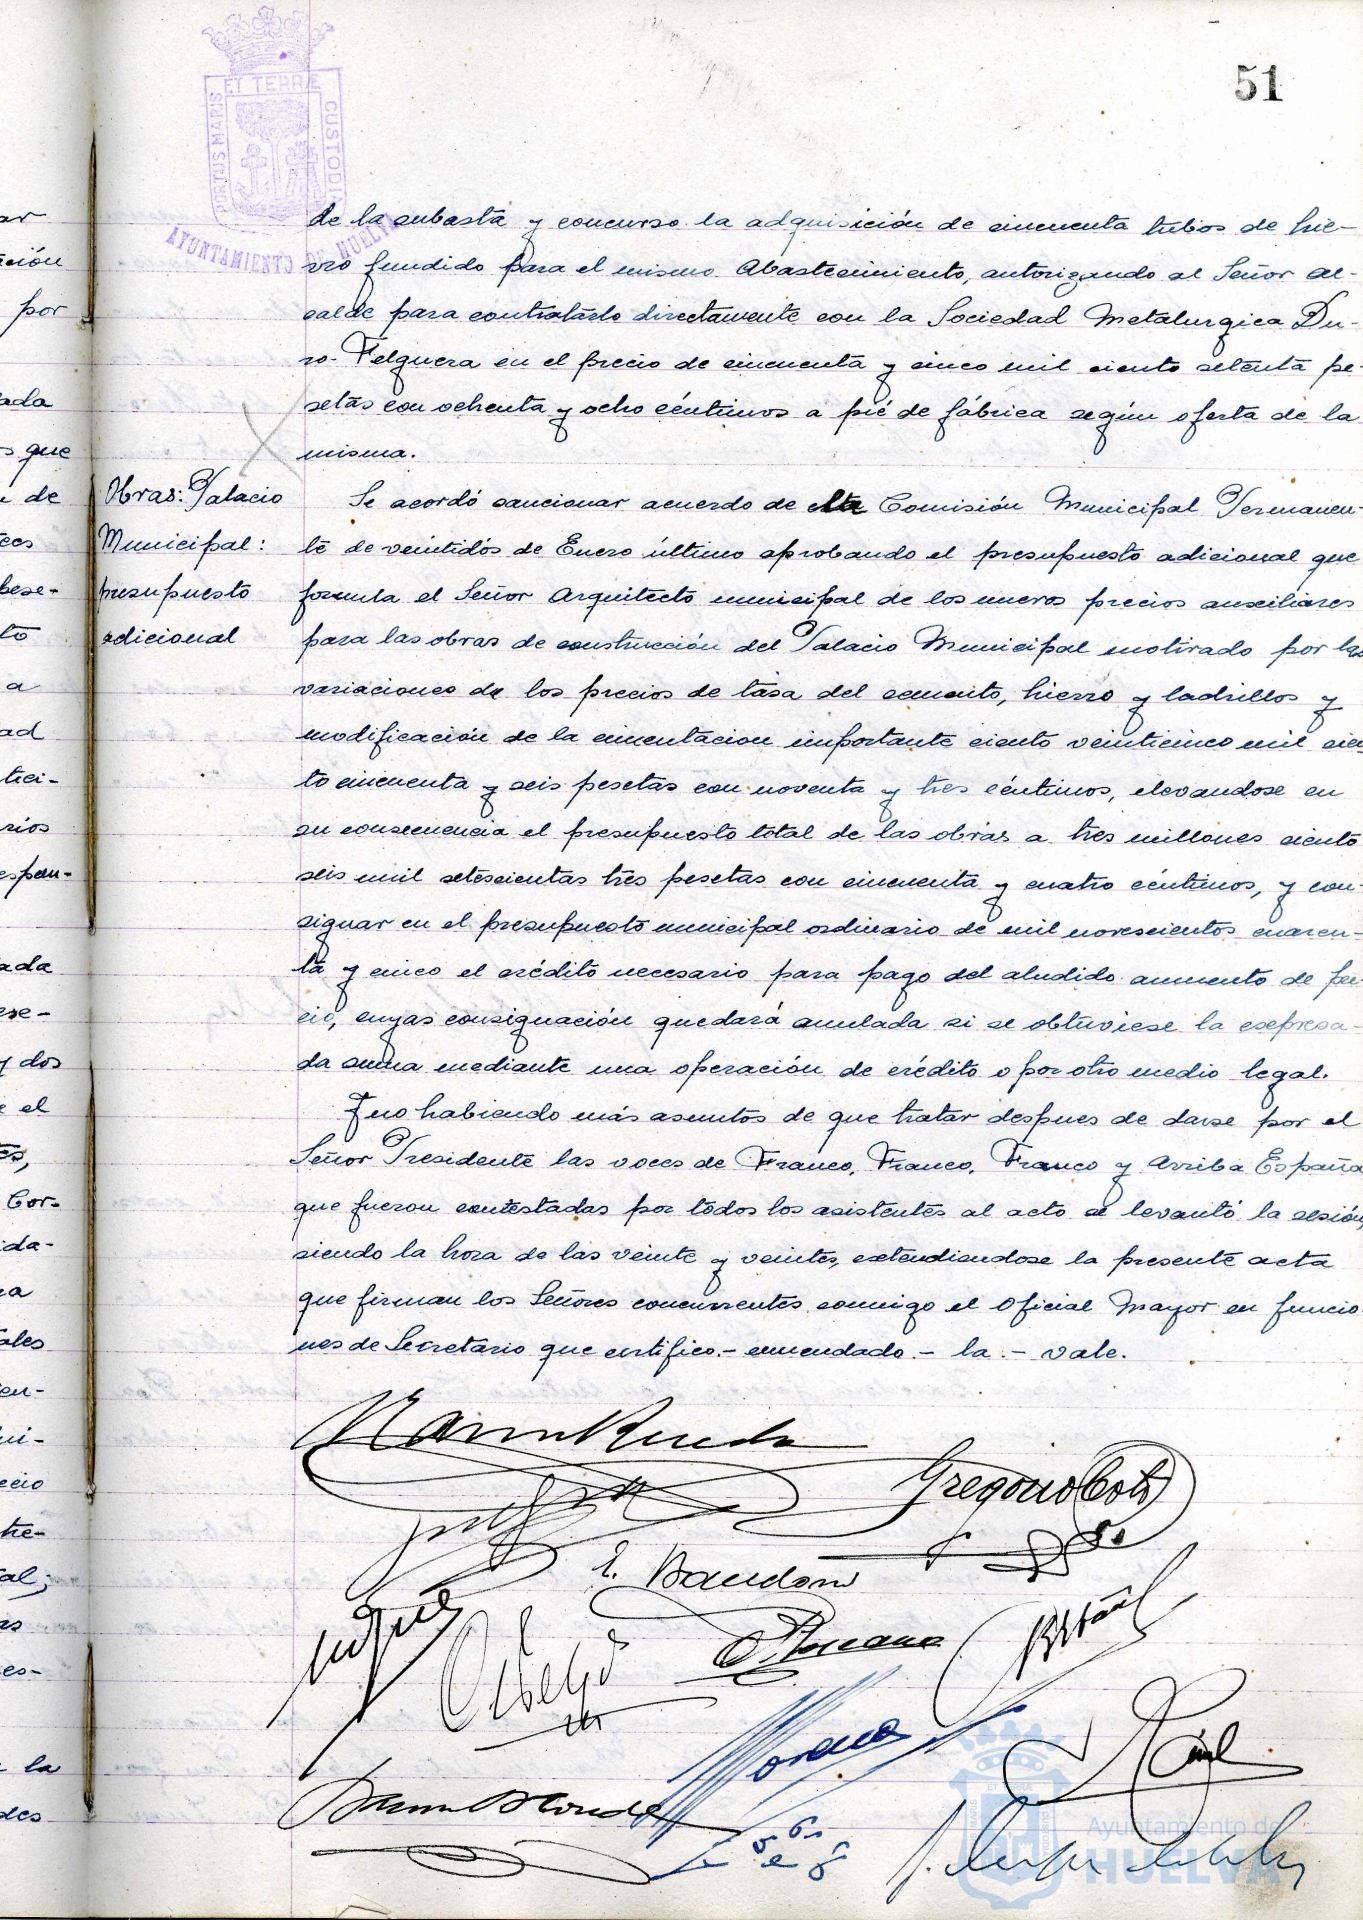 51
PORTUS MARIS ET TERRÆ CUSTODI
AYUNTAMIENTO DE HUELVA
de la subasta y concurso la adquisición de cincuenta tubos de hie-
rro fundido para el mismo Abastecimiento, autorizando al Señor Al-
calde para contratarlo directamente con la Sociedad Metalurgica Du-
ro-Felguera en el precio de cincuenta y cinco mil ciento setenta pe-
setas con ochenta y ocho céntimos a pié de fábrica según oferta de la
misma.
Obras: Palacio
Municipal:
presupuesto
adicional
Se acordó sancionar acuerdo de la Comisión Municipal Permanen-
te de veintidós de Enero último aprobando el presupuesto adicional que
formula el Señor Arquitecto municipal de los nuevos precios auxiliares
para las obras de construcción del Palacio Municipal motivado por las
variaciones de los precios de tasa del cemento, hierro y ladrillos y
modificación de la cimentacion importante ciento veinticinco mil cien-
to cincuenta y seis pesetas con noventa y tres céntimos, elevandose en
su consecuencia el presupuesto total de las obras a tres millones ciento
seis mil setescientas tres pesetas con cincuenta y cuatro céntimos, y con-
signar en el presupuesto municipal ordinario de mil novescientos cuaren-
ta y cinco el crédito necesario para pago del aludido aumento de pre-
cio, cuyas consignación quedará anulada si se obtuviese la expresa-
da suma mediante una operación de crédito o por otro medio legal.
Y no habiendo más asuntos de que tratar despues de darse por el
Señor Presidente las voces de Franco, Franco, Franco y Arriba España
que fueron contestadas por todos los asistentes al acto se levantó la sesión,
siendo la hora de las veinte y veinte, extendiendose la presente acta
que firman los Señores concurrentes conmigo el Oficial Mayor en funcio-
nes de Secretario que certifico.- enmendado.- la.- vale.
Gregorio
E.
Moreno
Ayuntamiento de
HUELVA
ar
ción
por
ada
s que
de
a
ad
tici-
rios
y dos
e el
Cor-
ida-
ales
cio
tre-
al;
es-
la
des